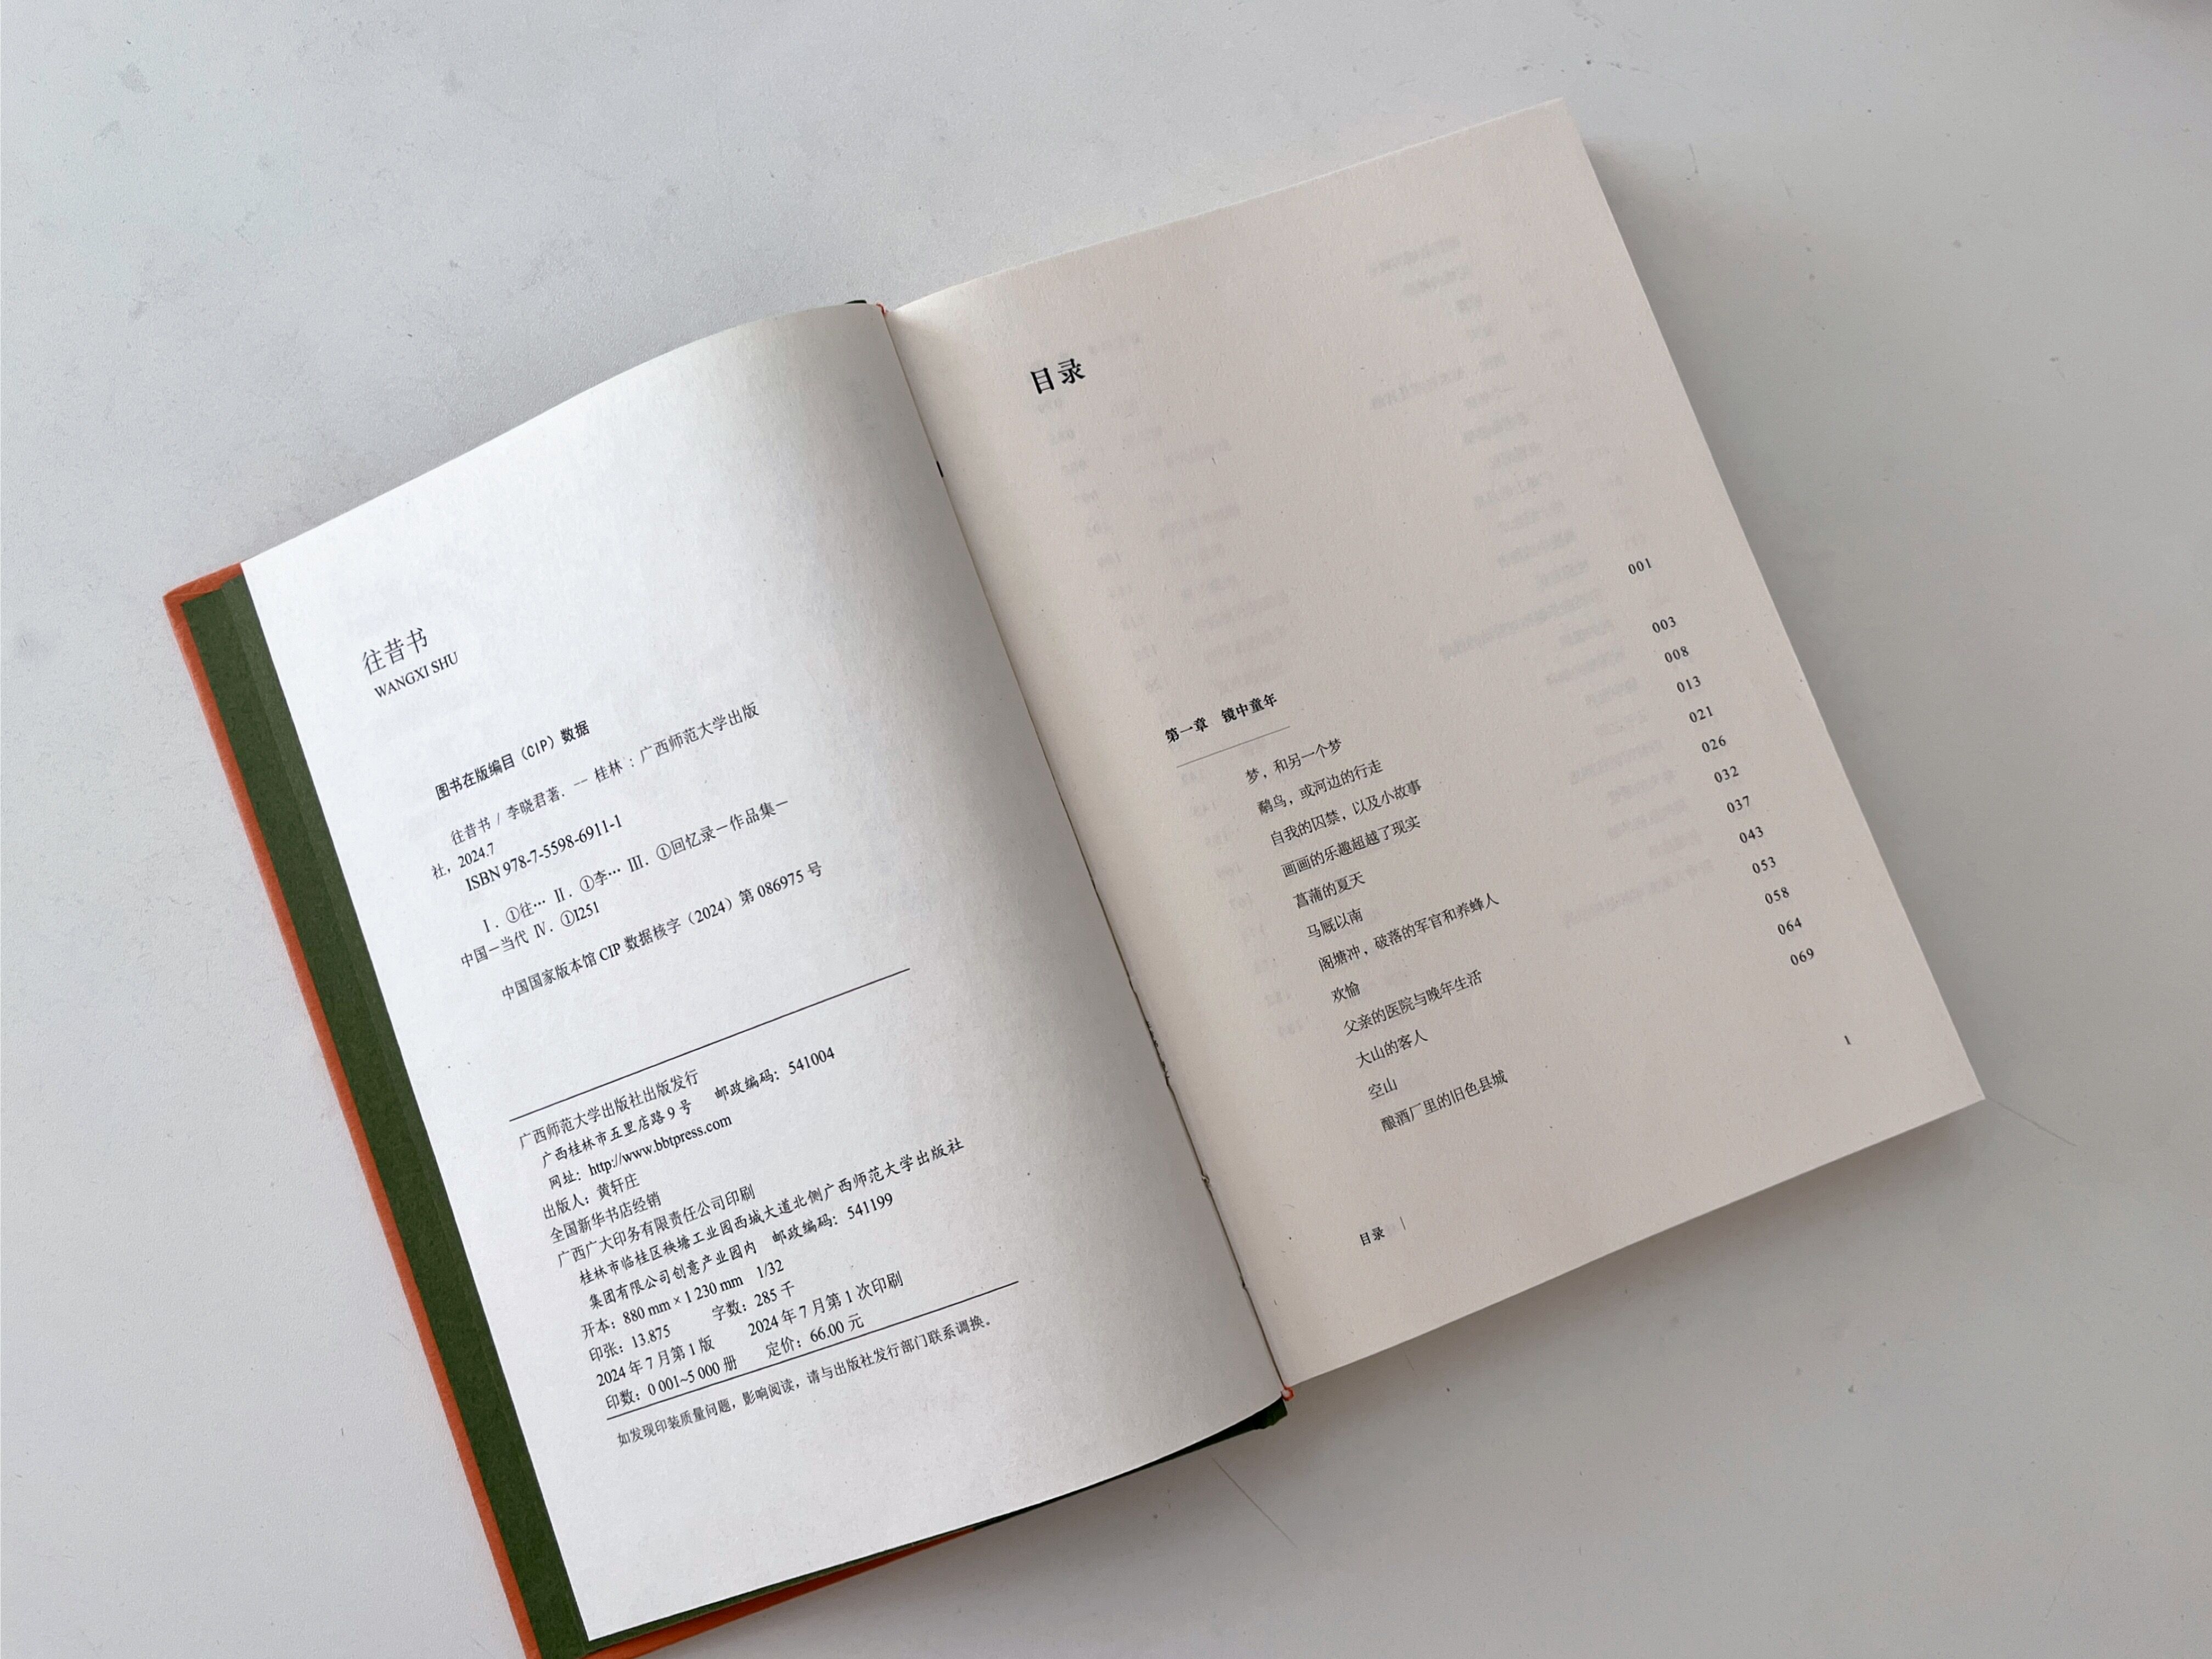 往昔书
WANGXI SHU
图书在版编目（CIP）数据
往昔书 / 李晓君著. -- 桂林 : 广西师范大学出版
社，2024.7
ISBN 978-7-5598-6911-1
Ⅰ. ①往… Ⅱ. ①李… Ⅲ. ①回忆录－作品集－
中国－当代 Ⅳ. ①I251
中国国家版本馆 CIP 数据核字（2024）第 086975 号
广西师范大学出版社出版发行
广西桂林市五里店路 9 号 邮政编码：541004
网址：http://www.bbtpress.com
出版人：黄轩庄
全国新华书店经销
广西广大印务有限责任公司印刷
桂林市临桂区秧塘工业园西城大道北侧广西师范大学出版社
集团有限公司创意产业园内 邮政编码：541199
开本：880 mm × 1 230 mm 1/32
印张：13.875 字数：285 千
2024 年 7 月第 1 版 2024 年 7 月第 1 次印刷
印数：0 001~5 000 册 定价：66.00 元
如发现印装质量问题，影响阅读，请与出版社发行部门联系调换。
目录
第一章 镜中童年 001
梦，和另一个梦 003
鹬鸟，或河边的行走 008
自我的囚禁，以及小故事 013
画画的乐趣超越了现实 021
菖蒲的夏天 026
马厩以南 032
阁塘冲，破落的军官和养蜂人 037
欢愉 043
父亲的医院与晚年生活 053
大山的客人 058
空山 064
酿酒厂里的旧色县城 069
目录 1